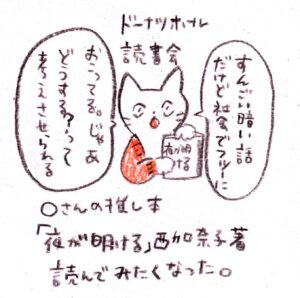 ドーナツホール
読書会
すんごい暗い話
だけど社会でフツーに
おこってる。じゃあ
どうする?って
考えさせられる
夜が明
ける
〇さんの推し本
「夜が明ける」西加奈子著
読んでみたくなった。